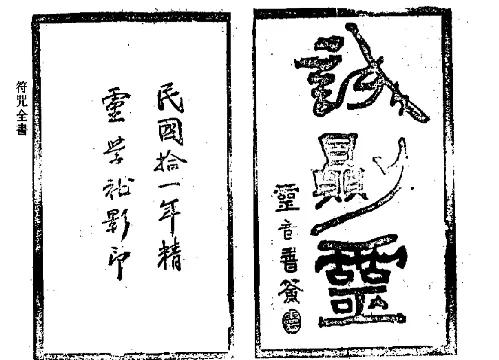 誠則靈
靈書簽
民國拾一年精
靈學社影印
符咒全書